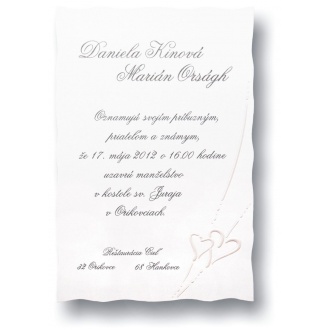 Daniela Kinová
Marián Orságh
Oznamujú svojím príbuzným,
priateľom a známym,
že 17. mája 2012 o 16.00 hodine
uzavrú manželstvo
v kostole sv. Juraja
v Oríkovciach.
Reštaurácia Cieľ
32 Orskovce
68 Hankovce